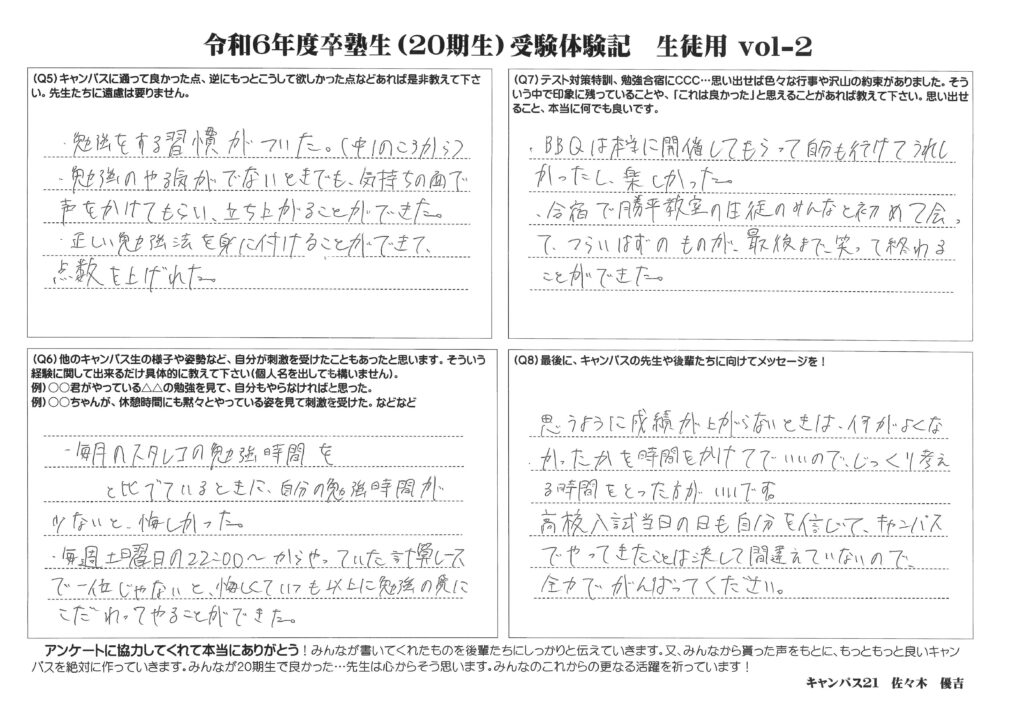 令和6年度卒塾生(20期生)受験体験記 生徒用 vol-2
(Q5)キャンパスに通って良かった点、逆にもっとこうして欲しかった点などあれば是非教えて下さ
い。先生たちに遠慮は要りません。
・勉強をする習慣がついた。(中1のころから)
・勉強のやる気がでないときでも、気持ちの面で
声をかけてもらい、立ち上がることができた。
・正しい勉強法を身に付けることができて、
点数を上げれた。
(Q6)他のキャンパス生の様子や姿勢など、自分が刺激を受けたこともあったと思います。そういう
経験に関して出来るだけ具体的に教えて下さい(個人名を出しても構いません)。
例)○○君がやっている△△の勉強を見て、自分もやらなければと思った。
例)○○ちゃんが、休憩時間にも黙々とやっている姿を見て刺激を受けた。などなど
・毎月のスタレコの勉強時間を
と比べているときに、自分の勉強時間が
少ないと、悔しかった。
・毎週土曜日の22:00〜からやっていた計算レース
で一位じゃないと、悔しくていつも以上に勉強の質に
こだわってやることができた。
(Q7)テスト対策特訓、勉強合宿にCCC…思い出せば色々な行事や沢山の約束がありました。そう
いう中で印象に残っていることや、「これは良かった」と思えることがあれば教えて下さい。思い出せ
ること、本当に何でも良いです。
・BBQは本当に開催してもらって自分も行けてうれし
かったし、楽しかった。
・合宿で勝平教室の生徒のみんなと初めて会っ
て、つらいはずのものが、最後まで笑って終れる
ことができた。
(Q8)最後に、キャンパスの先生や後輩たちに向けてメッセージを!
思うように成績が上がらないときは、何がよくな
かったかを時間をかけてでいいので、じっくり考え
る時間をとった方がいいです。
高校入試当日の日も自分を信じて、キャンパス
でやってきたことは決して間違えていないので、
全力でがんばってください。
アンケートに協力してくれて本当にありがとう!みんなが書いてくれたものを後輩たちにしっかりと伝えていきます。又、みんなから貰った声をもとに、もっともっと良いキャン
パスを絶対に作っていきます。みんなが20期生で良かった…先生は心からそう思います。みんなのこれからの更なる活躍を祈っています!
キャンパス21 佐々木 優吉